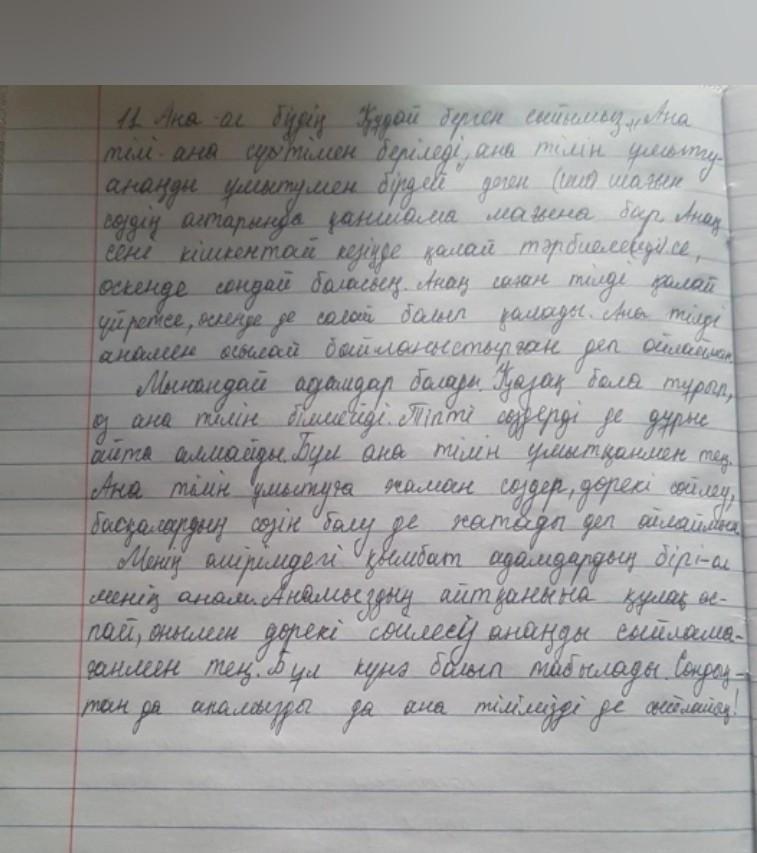 11 Ана-ол біздің Құдай берген сыйымыз. „Ана
тілі-ана сүтімен беріледі, ана тілін ұмыту-
анаңды ұмытумен бірдей" деген шағын
сөздің астарында қаншама мағына бар. Анаң
сені кішкентай кезіңде қалай тәрбиелесе,
өскенде сондай боласың. Анаң саған тілді қалай
үйретсе, өскенде де солай болып қалады. Ана тілді
анамен осылай байланыстырған деп ойлаймын.
Мынандай адамдар болады. Қазақ бола тұрып,
өз ана тілін білмейді. Тіпті сөздерді де дұрыс
айта алмайды. Бұл ана тілін ұмытқанмен тең.
Ана тілін ұмытуға жаман сөздер, дөрекі сөйлеу,
басқалардың сөзін бөлу де жатады деп ойлаймын.
Менің өмірімдегі қымбат адамдардың бірі-ол
менің анам. Анамыздың айтқанына құлақ ас-
пай, онымен дөрекі сөйлесу анаңды сыйлама-
ғанмен тең. Бұл күнә болып табылады. Сондық-
тан да анамызды да ана тілімізді де сыйлайық!